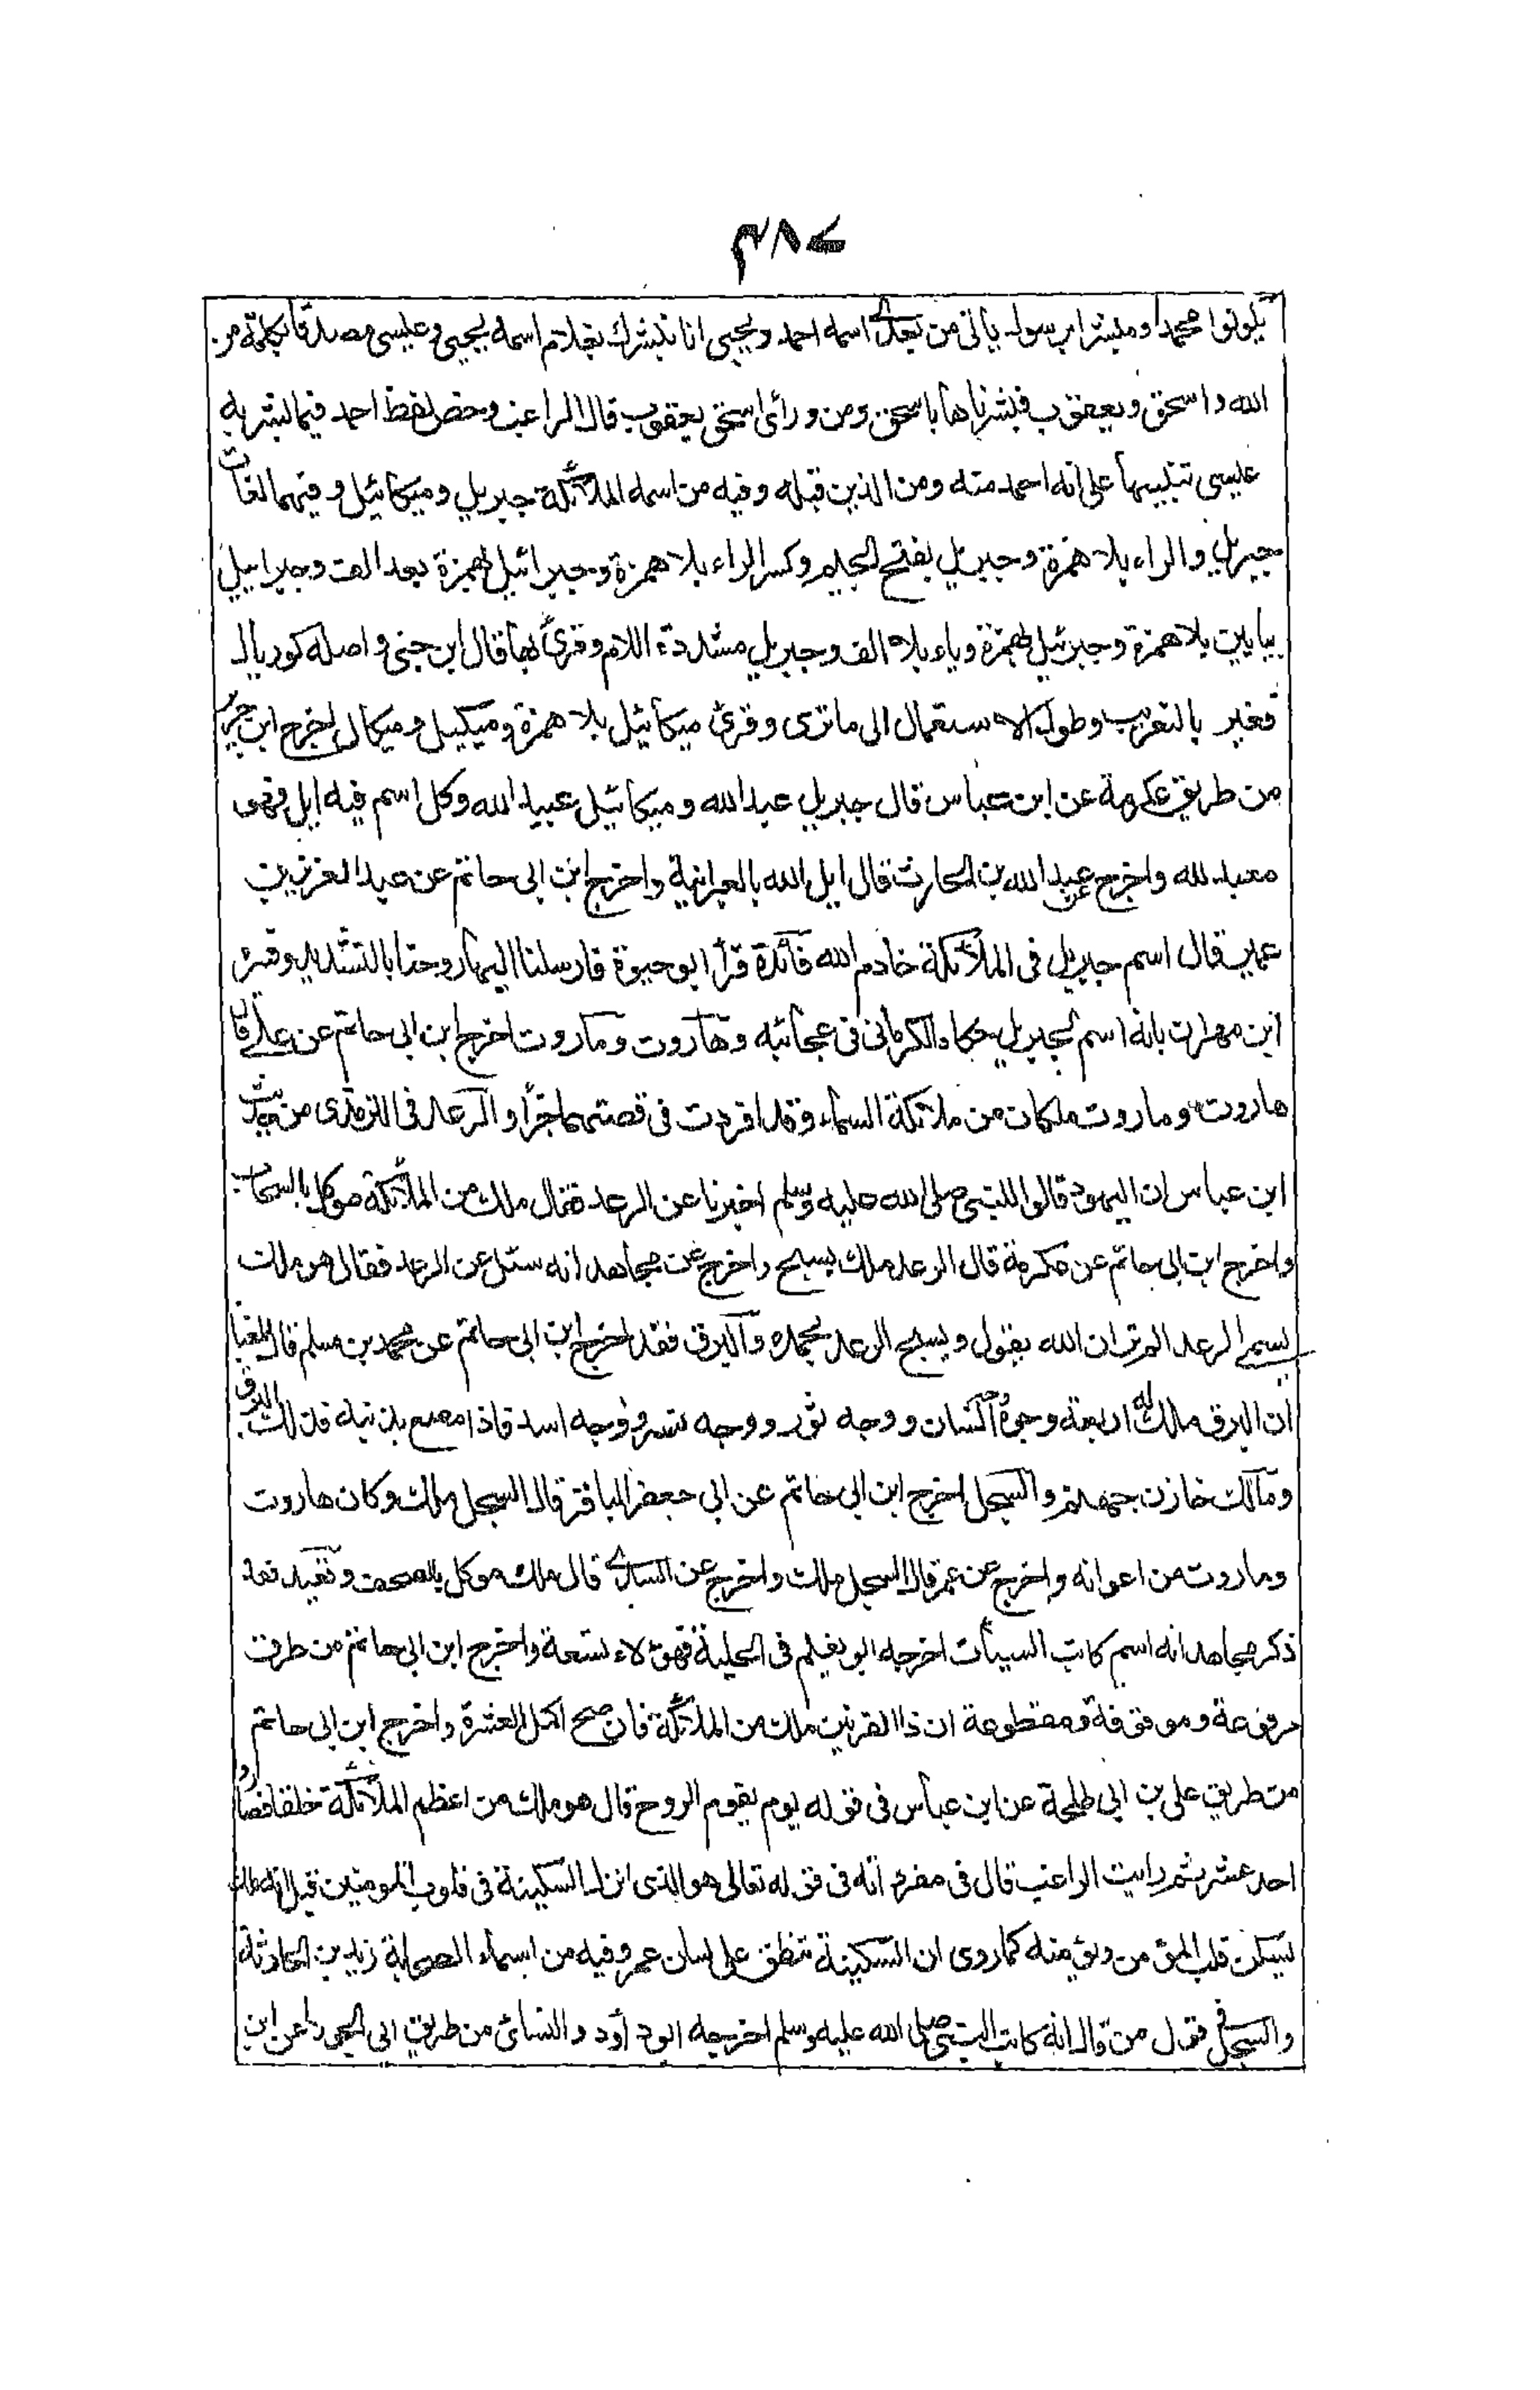 ٣٨٧
يكونوا محمدا ومبشرا برسول ياتى من بعدى اسمه احمد ويحيى انا نبشرك بغلام اسمه يحيى وعيسى مصدقا بكلمة من
الله واسحق ويعقوب فبشرناها باسحق ومن ورائ اسحق يعقوب قال الراغب وخص لفظ احمد فيما بشر به
عيسى تنبيها على انه احمد منه ومن الذين قبله وفيه من اسماء الملائكة جبريل وميكائيل وفيهما لغات
جبريل والراء بلا همزة وجبريل بفتح الجيم وكسر الراء بلا همزة وجبرائيل بهمزة بعد الف وجبراييل
بيايين بلا همزة وجبرئيل بهمزة وياء بلا الف وجبريل مشددة اللام وقرئ بها قال ابن جنى واصله كوريال
فغير بالتعريب وطول الاستعمال الى ما ترى وقرئ ميكائيل بلا همزة وميكييل وميكال اخرج ابن جرير
من طريق عكرمة عن ابن عباس قال جبريل عبد الله وميكائيل عبيد الله وكل اسم فيه ايل فهو
معبد لله واخرج عن عبد الله بن الحارث قال ايل الله بالعبرانية واخرج ابن ابى حاتم عن عبد العزيز بن
عمير قال اسم جبريل فى الملائكة خادم الله فائدة قرأ ابو حيوة فارسلنا اليها روحنا بالتشديد وفسره
ابن مهران بانه اسم لجبريل حكاه الكرمانى فى عجائبه وهاروت وماروت اخرج ابن ابى حاتم عن على قال
هاروت وماروت ملكان من ملائكة السماء وقد افردت فى قصتهما جزأ والرعد فى الترمذى من حديث
ابن عباس ان اليهود قالوا للنبى صلى الله عليه وسلم اخبرنا عن الرعد فقال ملك من الملائكة موكل بالسحاب
واخرج ابن ابى حاتم عن عكرمة قال الرعد ملك يسبح واخرج عن مجاهد انه سئل عن الرعد فقال هو ملك
يسمى الرعد الم تر ان الله يقول ويسبح الرعد بحمده والبرق فقد اخرج ابن ابى حاتم عن محمد بن مسلم قال بلغنا
ان البرق ملك له اربعة وجوه وجه انسان ووجه ثور ووجه نسر ووجه اسد فاذا مصع بذنبه فذلك البرق
ومالك خازن جهنم والسجل اخرج ابن ابى حاتم عن ابى جعفر الباقر قال السجل ملك وكان هاروت
وماروت من اعوانه واخرج عن عمر قال السجل ملك واخرج عن السدى قال ملك موكل بالصحف وقعيد فقد
ذكر مجاهد انه اسم كاتب السيئات اخرجه ابو نعيم فى الحلية فهؤلاء تسعة واخرج ابن ابى حاتم من طرق
مرفوعة وموقوفة ومقطوعة ان ذا القرنين ملك من الملائكة فان صح اكمل العشرة واخرج ابن ابى حاتم
من طريق على بن ابى طلحة عن ابن عباس فى قوله يوم يقوم الروح قال هو ملك من اعظم الملائكة خلقا فصاروا
احد عشر ثم رايت الراغب قال فى مفرداته فى قوله تعالى هو الذى انزل السكينة فى قلوب المومنين قيل انه ملك
يسكن قلب المؤمن ويؤمنه كما روى ان السكينة تنطق على لسان عمر وفيه من اسماء الصحابة زيد بن الحارثة
والسجل فى قول من قال انه كاتب النبى صلى الله عليه وسلم اخرجه ابو داود والنسائ من طريق ابى الجوزا عن ابن